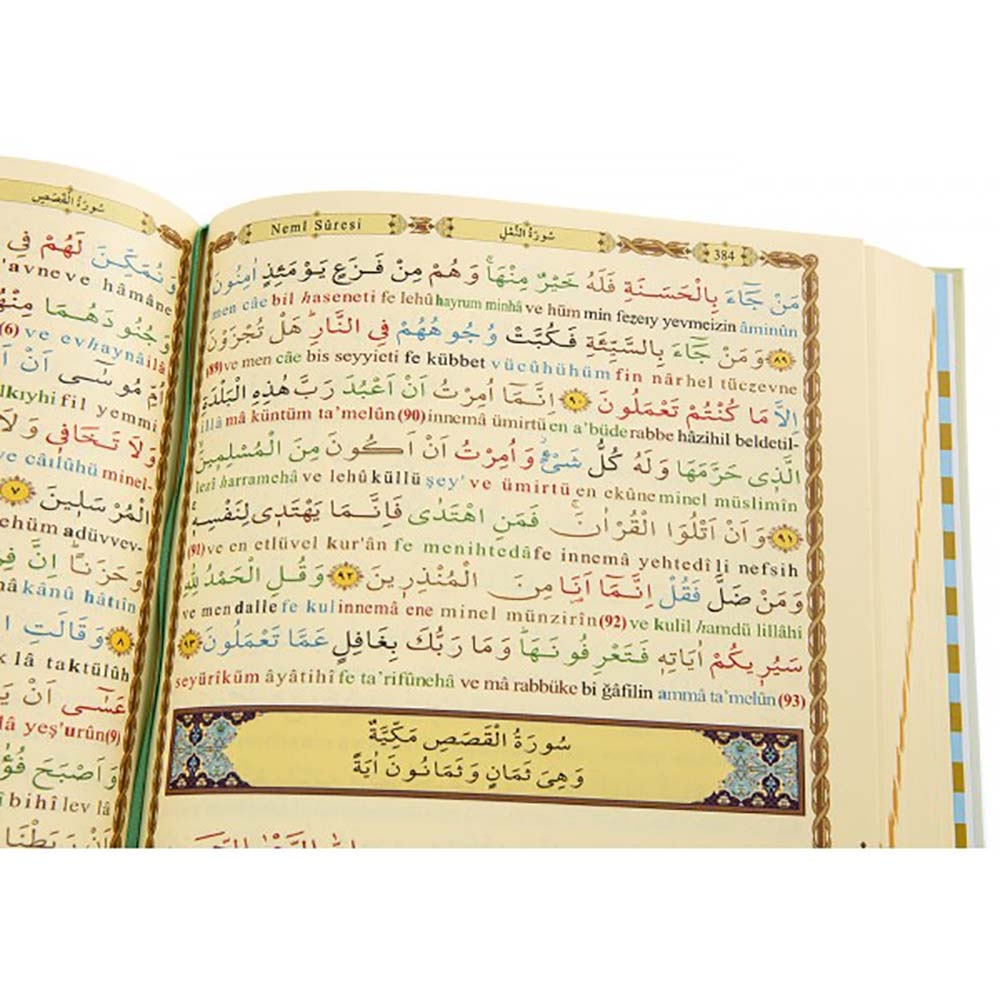 Neml Sûresi
سُورَةُ النَّمْلِ
384
مَنْ جَٓاءَ بِالْحَسَنَةِ فَلَهُ خَيْرٌ مِنْهَاۚ وَهُمْ مِنْ فَزَعٍ يَوْمَئِذٍ اٰمِنُونَ
men câe bil haseneti fe lehû hayrum minhâ ve hüm min fezeıy yevmeizin âminûn
﴿٨٩﴾ وَمَنْ جَٓاءَ بِالسَّيِّئَةِ فَكُبَّتْ وُجُوهُهُمْ فِي النَّارِۜ هَلْ تُجْزَوْنَ
(89) ve men câe bis seyyieti fe kübbet vücûhühüm fin nârhel tüczevne
اِلَّا مَا كُنْتُمْ تَعْمَلُونَ ﴿٩٠﴾ اِنَّمَٓا اُمِرْتُ اَنْ اَعْبُدَ رَبَّ هٰذِهِ الْبَلْدَةِ
illâ mâ küntüm ta'melûn(90) innemâ ümirtü en a'büde rabbe hâzihil beldetil-
الَّذ۪ي حَرَّمَهَا وَلَهُ كُلُّ شَيْءٍۘ وَاُمِرْتُ اَنْ اَكُونَ مِنَ الْمُسْلِم۪ينَۙ
lezî harramehâ ve lehû küllü şey' ve ümirtü en ekûne minel müslimîn
﴿٩١﴾ وَاَنْ اَتْلُوَا الْقُرْاٰنَۚ فَمَنِ اهْتَدٰى فَاِنَّمَا يَهْتَد۪ي لِنَفْسِه۪ۚ
(91) ve en etlüvel kur'ân fe menihtedâ fe innemâ yehtedî li nefsih
وَمَنْ ضَلَّ فَقُلْ اِنَّمَٓا اَنَا۬ مِنَ الْمُنْذِر۪ينَ ﴿٩٢﴾ وَقُلِ الْحَمْدُ لِلّٰهِ
ve men dalle fe kul innemâ ene minel münzirîn(92) ve kulil hamdü lillâhi
سَيُر۪يكُمْ اٰيَاتِه۪ فَتَعْرِفُونَهَاۜ وَمَا رَبُّكَ بِغَافِلٍ عَمَّا تَعْمَلُونَ ﴿٩٣﴾
seyürîküm âyâtihî fe ta'rifûnehâ ve mâ rabbüke bi ğâfilin ammâ ta'melûn (93)
سُورَةُ الْقَصَصِ مَكِّيَّةٌ
وَهِيَ ثَمَانٍ وَثَمَانُونَ اٰيَةً
سُورَةُ الْقَصَصِ
وَنُمَكِّنَ لَهُمْ فِي
'avne ve hâmâne
وَجُنُودَهُمَا مِنْهُ
(6) ve evhaynâ ilâ
اُمِّ مُوسٰٓى اَنْ اَ
lkıyhi fil yemmi
وَلَا تَخَاف۪ي وَلَا
ve câılûhü minel-
الْمُرْسَل۪ينَ ﴿٧﴾
lehüm adüvvev-
وَحَزَنًاۜ اِنَّ فِرْ
mâ kânû hâtıîn
﴿٨﴾ وَقَالَتِ ا
k lâ taktülûh
عَسٰٓى اَنْ يَ
lâ yeş'urûn(9)
وَاَصْبَحَ فُؤٰ
î bihî lev lâ
اَنْ رَبَطْنَا